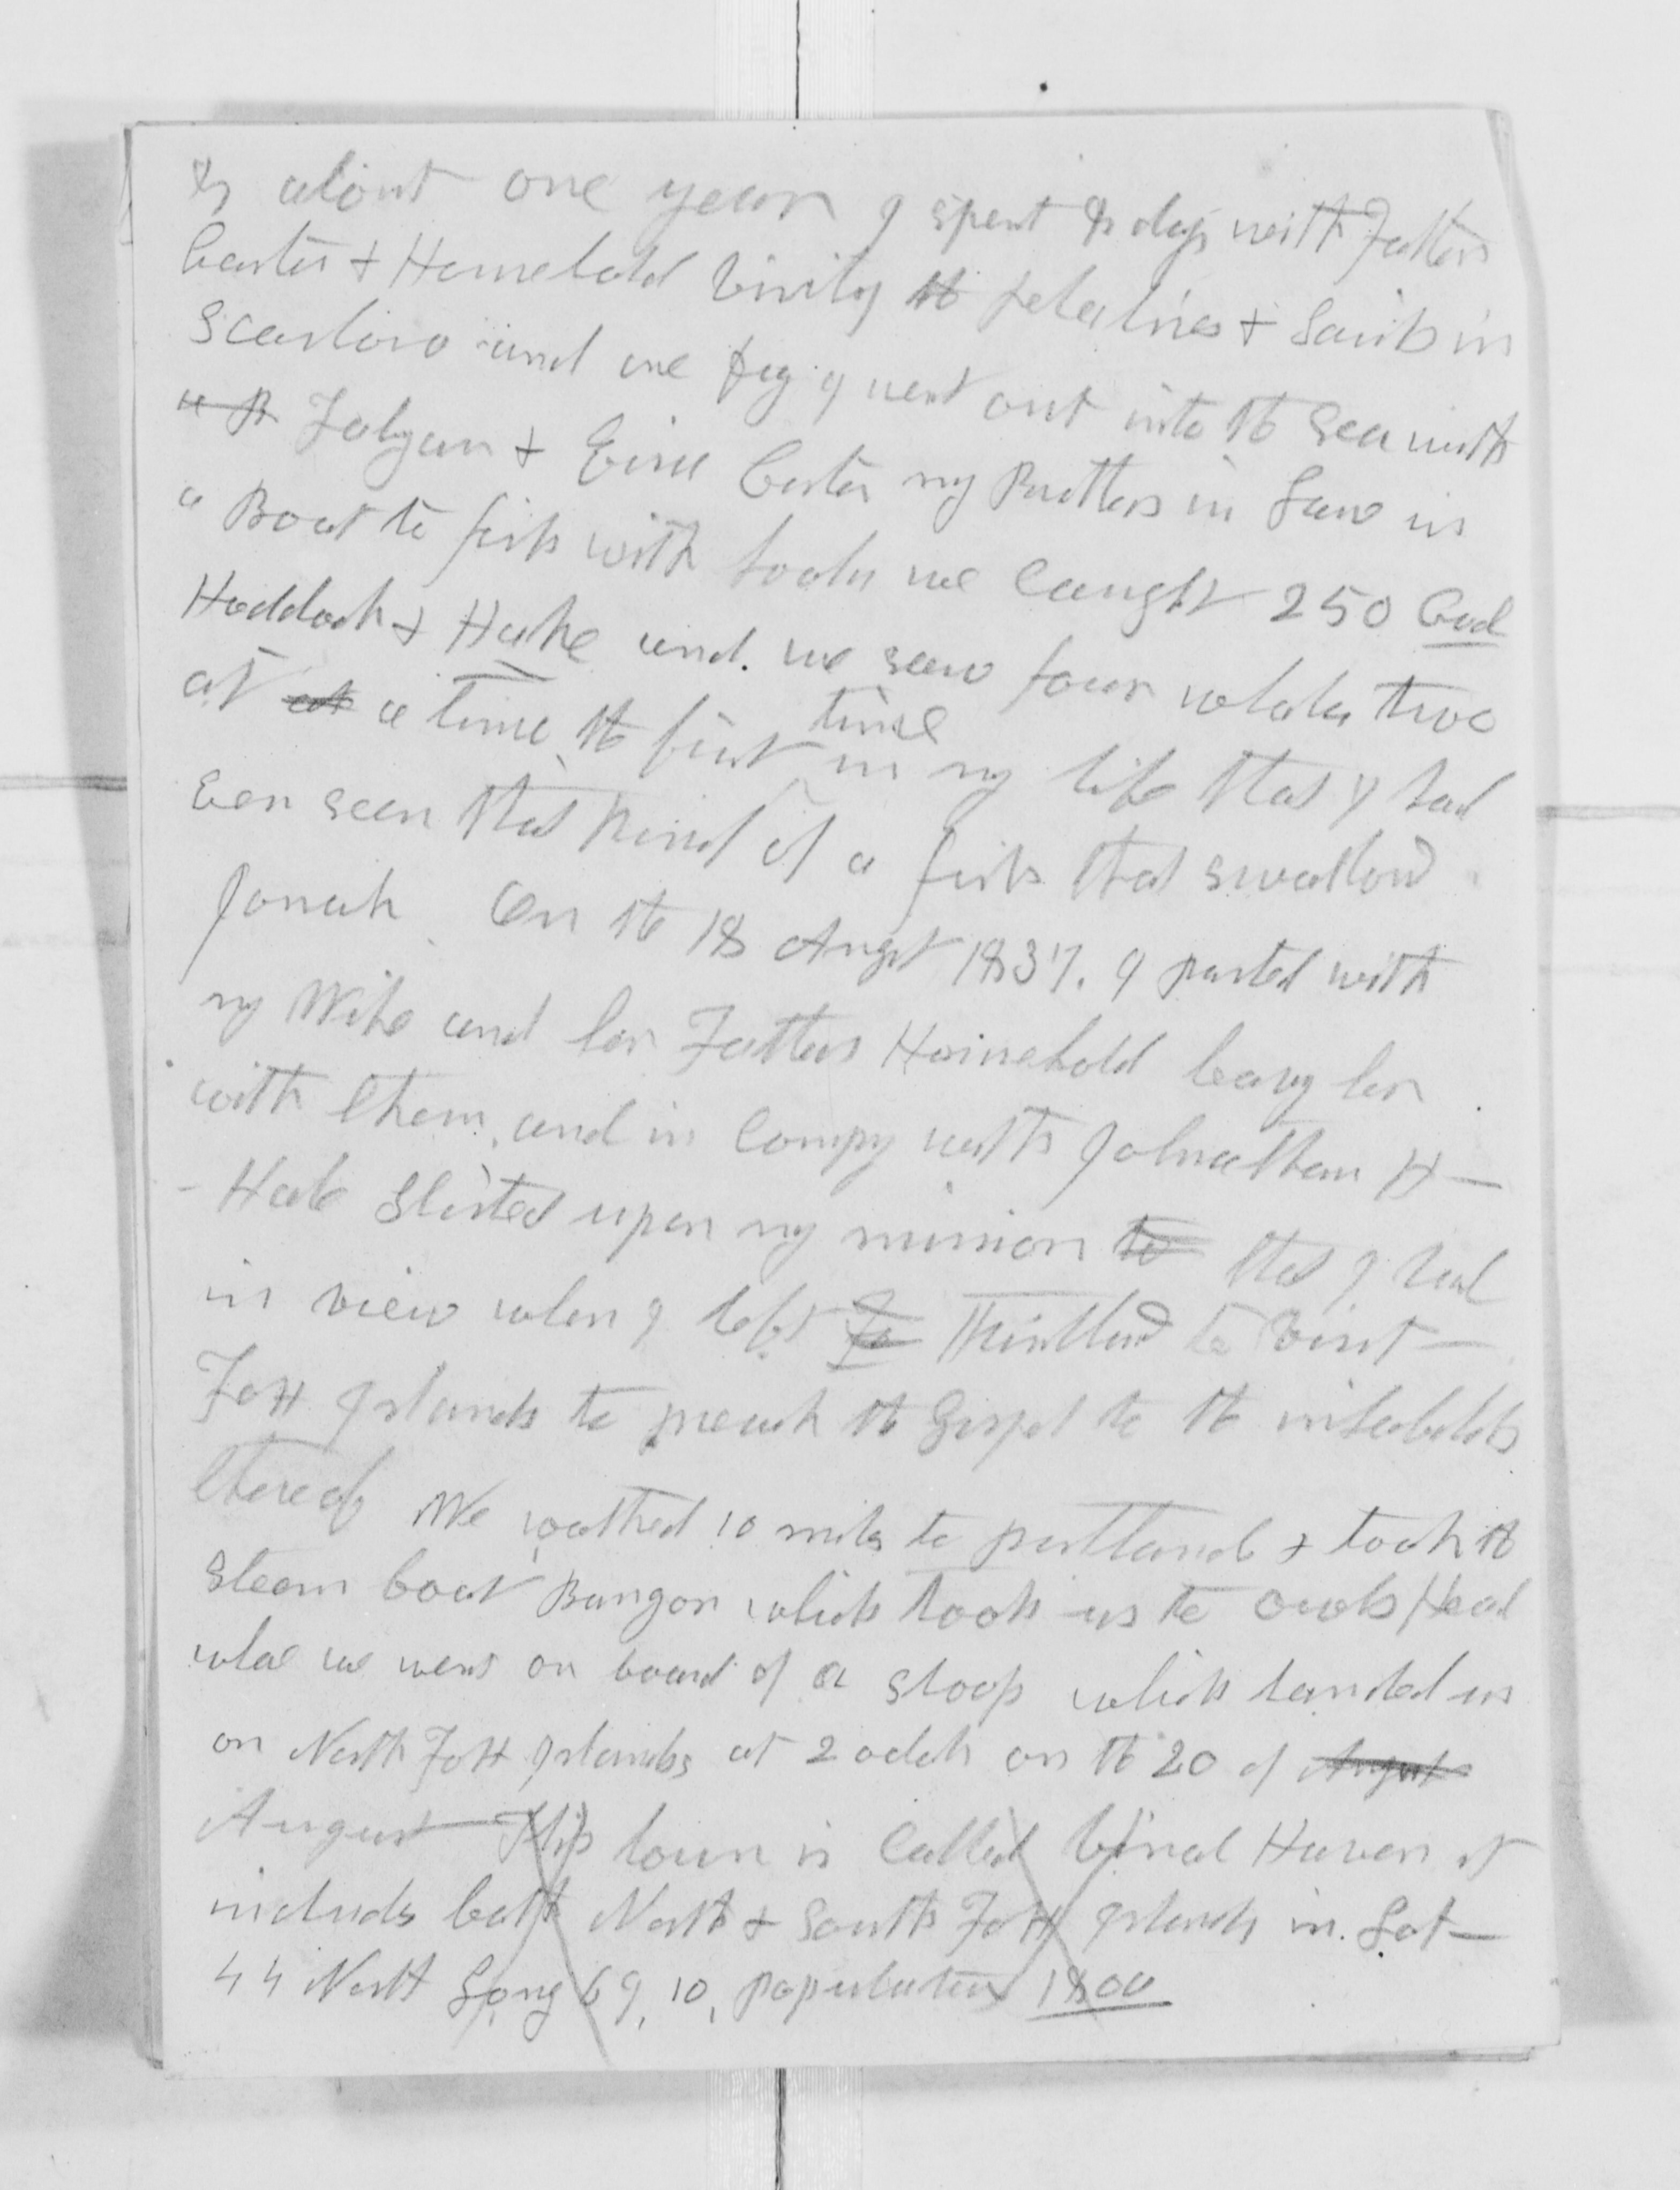 about one year I spent 8 days with Father
Carter & Household Visiting the relatives & Saints in
Scarboro and one day I went out into the Sea with
Fabyan & Ezra Carter my Brothers in Law in
a Boat to fish with hooks we caught 250 Cod
Haddock & Hake and we saw four whales two
at at a time the first time in my life that I had
Ever seen that kind of a fish that swallowd
Jonah On the 18 Augst 1837. I parted with
my Wife and her Fathers Household leavg her
with them, and in compy with Johnathan H-
- Hale Started upon my mission to that I had
in view when I left Kirtland to Visit
Fox Islands to preach the Gospel to the
thereof We walked 10 miles to portland & took the
Steam boat Bangor which took us to owls Head
whare we went on board of a Sloop which landed us
on North Fox Islands at 2 oclok on the 20 of August
August This town is Called Vinal Haven it
includs both North & South Fox Islands in. Lat-
44 North Long 69, 10, population 1800